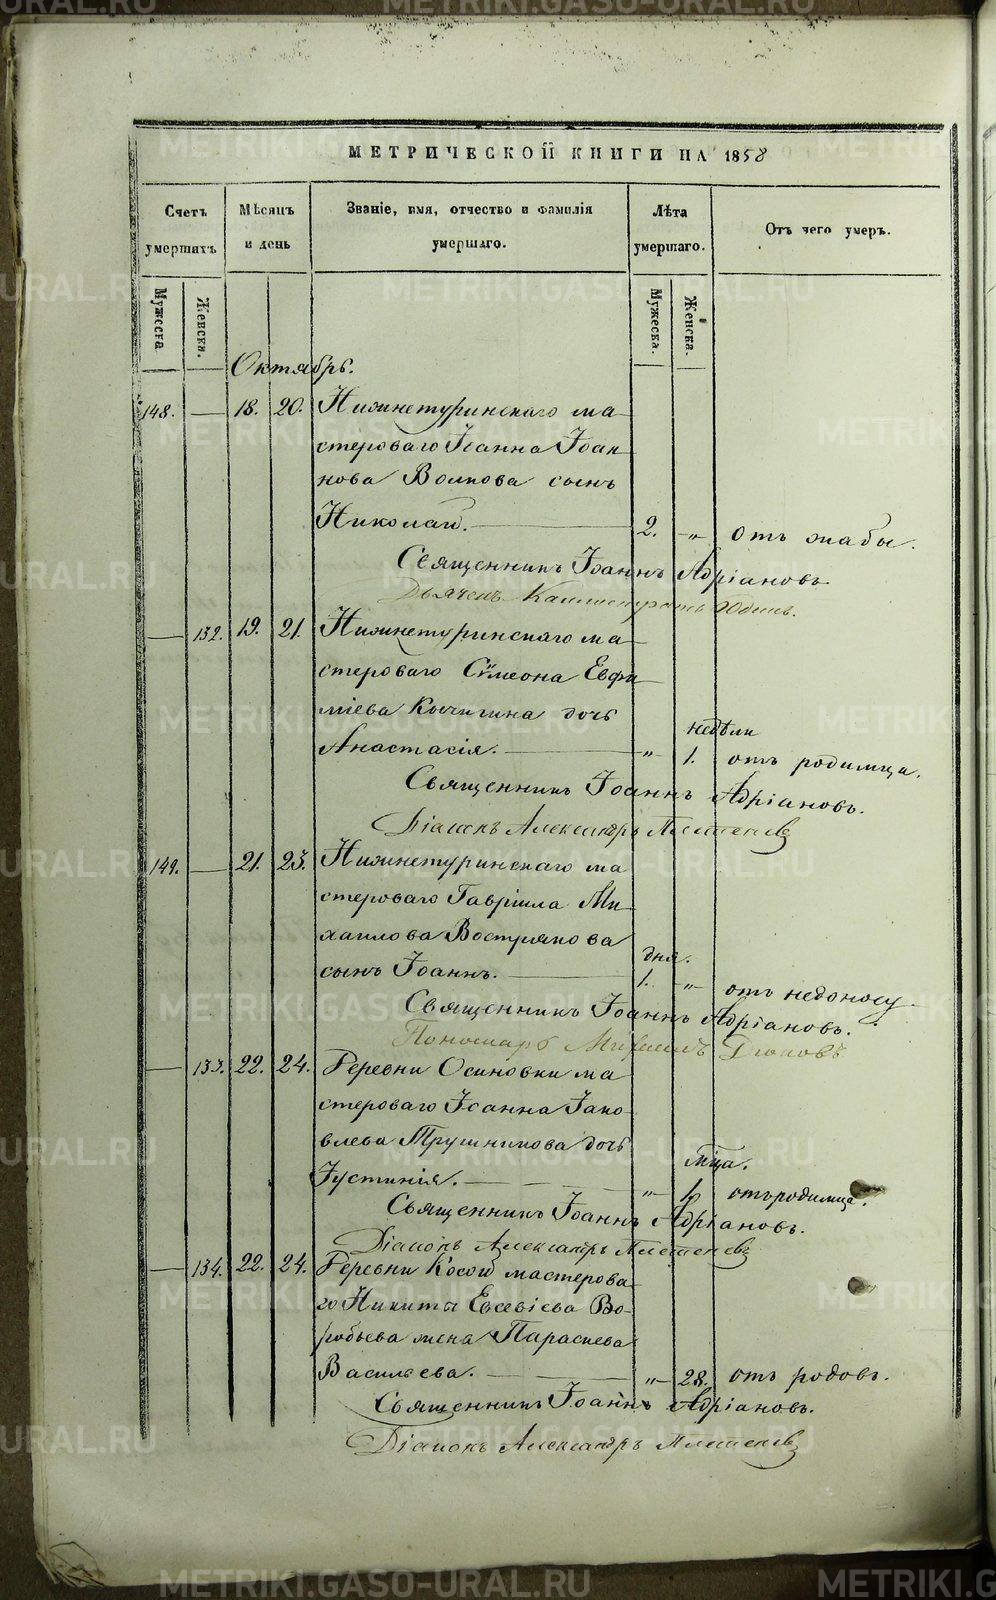 МЕТРИЧЕСКОЙ КНИГИ НА 1858
Счетъ умершихъ
Мѣсяцъ и день
Званіе, имя, отчество и фамилія умершаго.
Лѣта умершаго.
Отъ чего умеръ.
Мужеска.
Женска.
Мужеска.
Женска.
Октябрь.
148. — 18. 20. Нижнетуринскаго ма-
стероваго Іоанна Іоан-
нова Волкова сынъ
Николай. 2. „ отъ жабы.
Священникъ Іоаннъ Адріановъ
Дьячекъ
— 132. 19. 21. Нижнетуринскаго ма-
стероваго Сѵмеона Евфи-
міева Кычигина дочь
недѣли
Анастасія. „ 1. отъ родимца.
Священникъ Іоаннъ Адріановъ.
Діаконъ Александръ
149. — 21. 23. Нижнетуринскаго ма-
стероваго Гавріила Ми-
хаилова Вострякова
дня.
сынъ Іоаннъ. 1. „ отъ недоносу.
Священникъ Іоаннъ Адріановъ.
Пономарь Михаилъ
— 133. 22. 24. Деревни Осиновки ма-
стероваго Іоанна Іако-
влева Трушникова дочь
мца.
Іустинія. „ 1. отъ родимца.
Священникъ Іоаннъ Адріановъ.
Діаконъ Александръ
— 134. 22. 24. Деревни Косой мастерова-
го Никиты Евсевіева Во-
робьева жена Параскева
Васильева. „ 28. отъ родовъ.
Священникъ Іоаннъ Адріановъ.
Діаконъ Александръ
METRIKI.GASO-URAL.RU